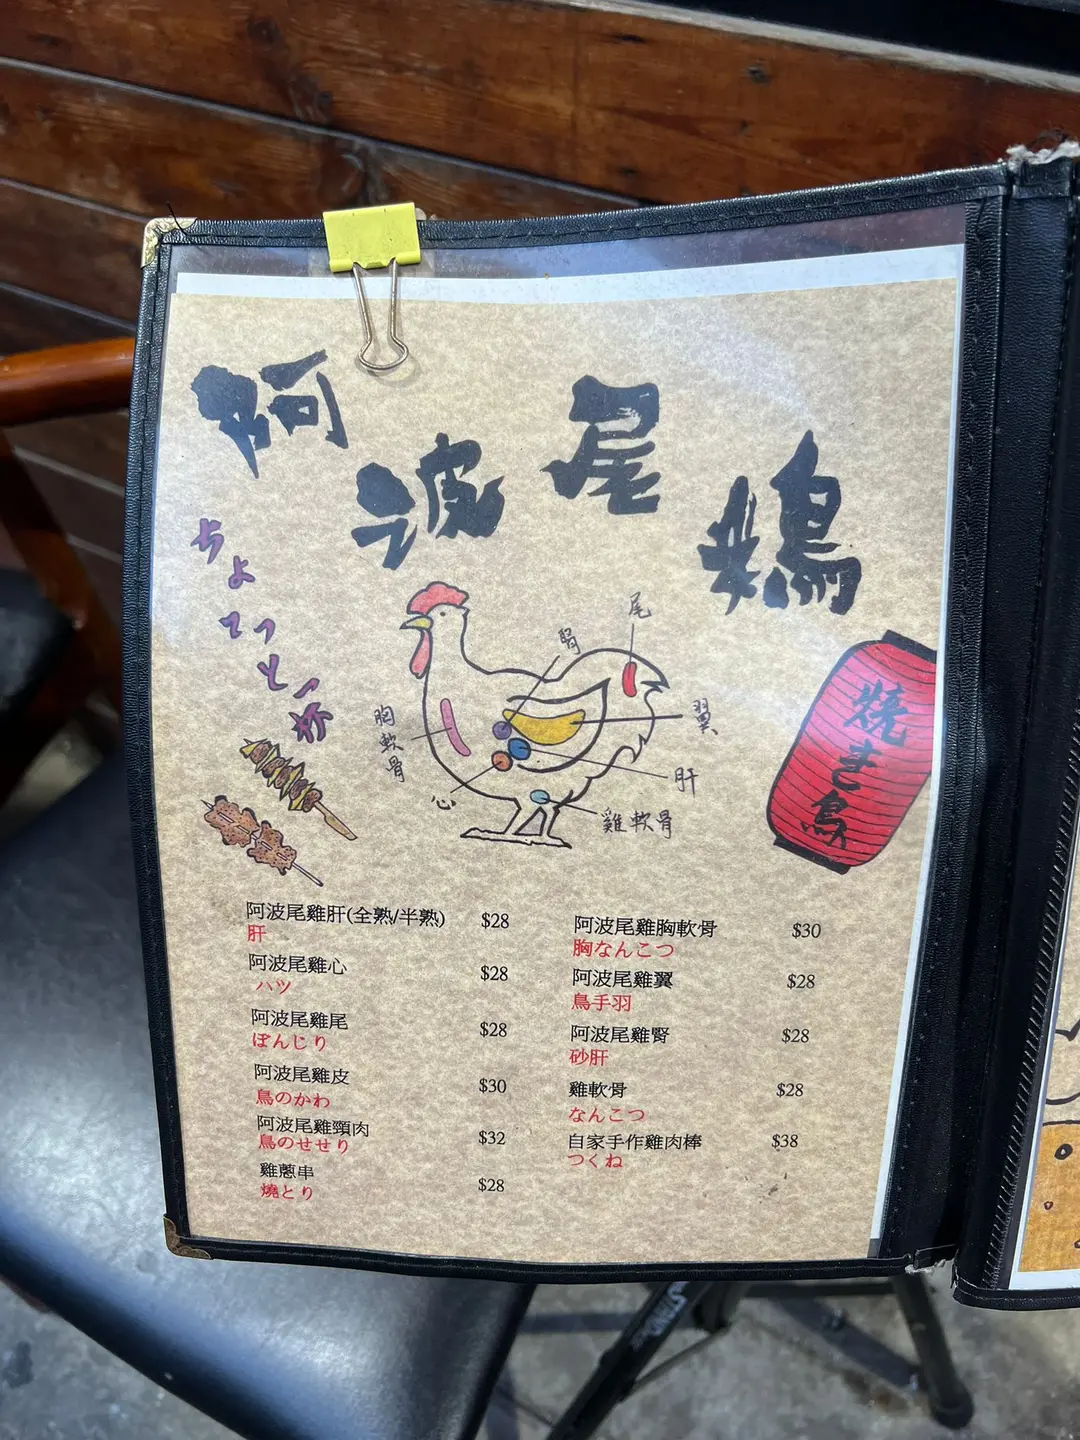 阿波尾鶏
ちょっと一杯
尾
腎
胸軟骨
翼
肝
心
雞軟骨
焼き鳥
阿波尾雞肝(全熟/半熟) $28
肝
阿波尾雞心 $28
ハツ
阿波尾雞尾 $28
ぼんじり
阿波尾雞皮 $30
鳥のかわ
阿波尾雞頸肉 $32
鳥のせせり
雞蔥串 $28
燒とり
阿波尾雞胸軟骨 $30
胸なんこつ
阿波尾雞翼 $28
鳥手羽
阿波尾雞腎 $28
砂肝
雞軟骨 $28
なんこつ
自家手作雞肉棒 $38
つくね